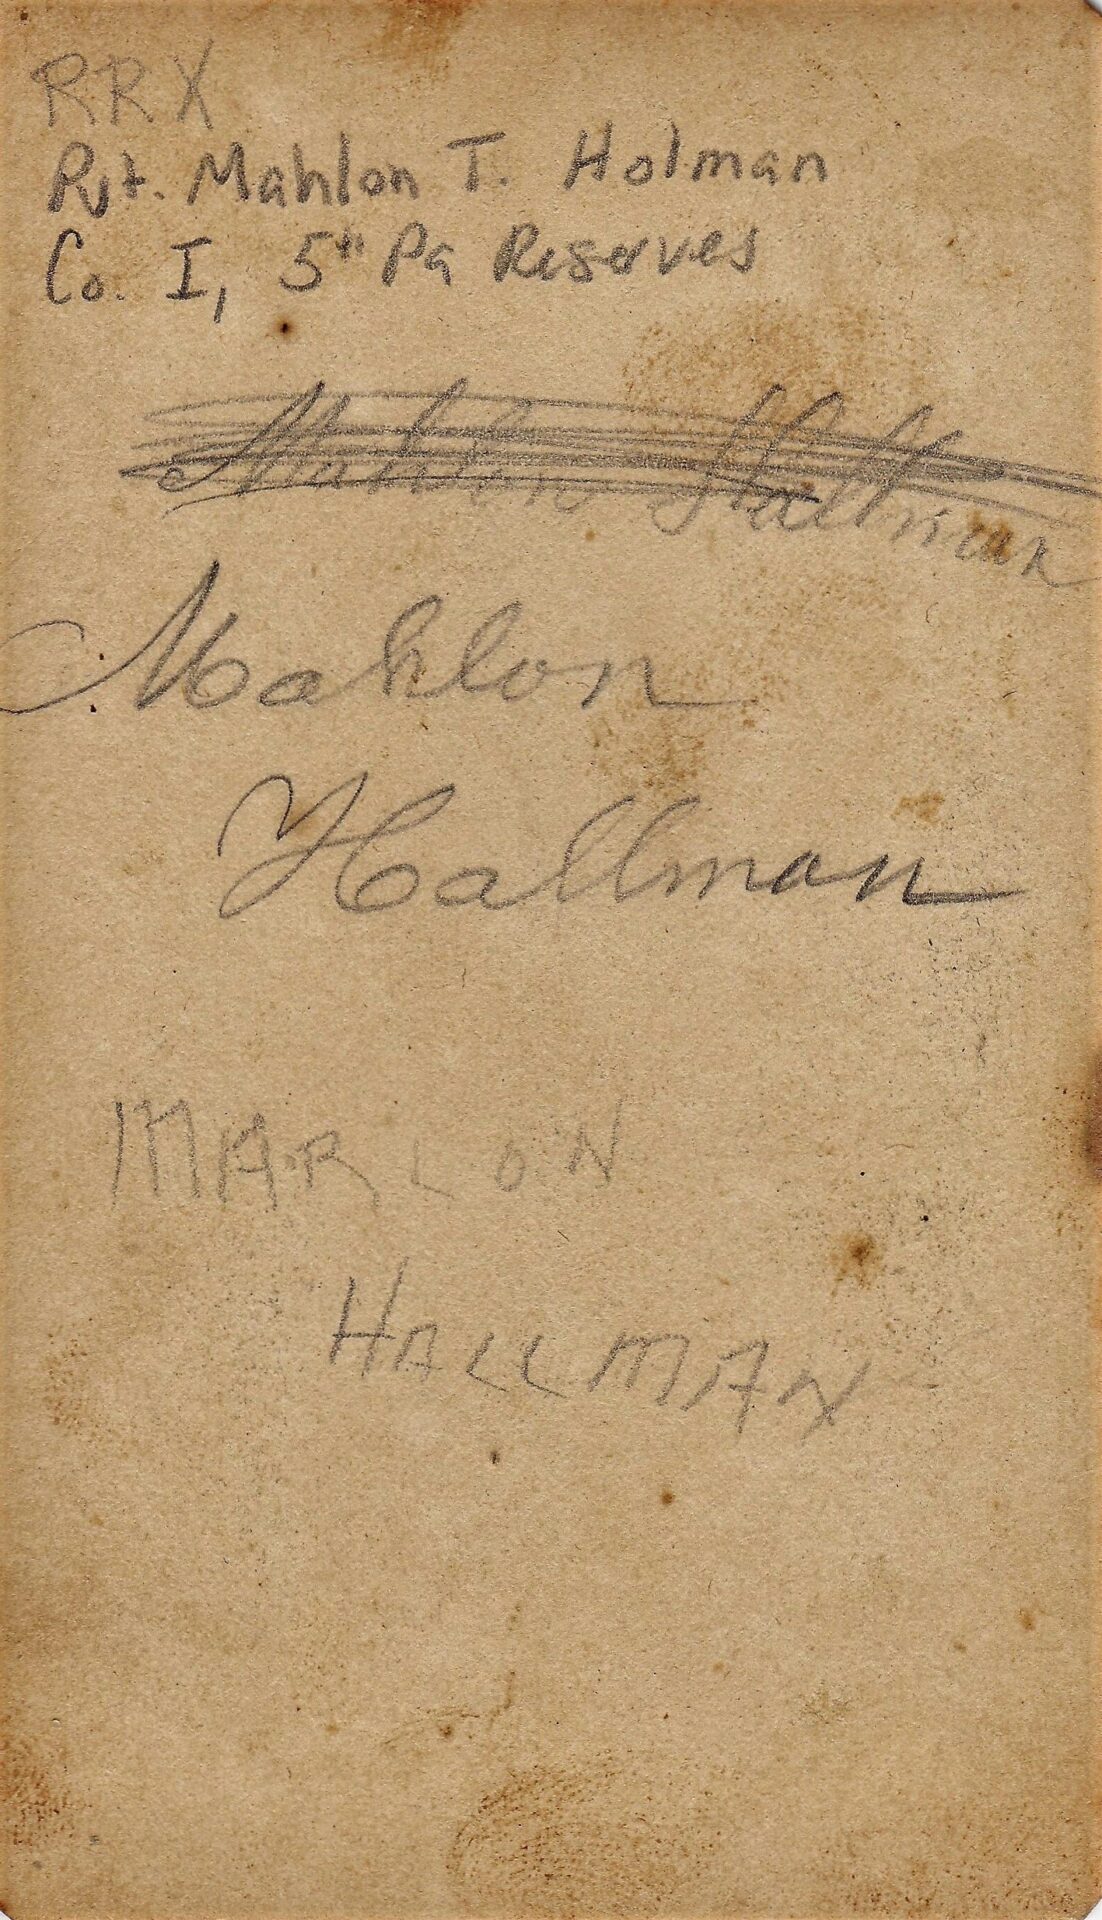 RRX
Pvt. Mahlon T. Holman
Co. I, 5th Pa Reserves
Mahlon Hallman
Mahlon
Hallman
MARLON
HALLMAN